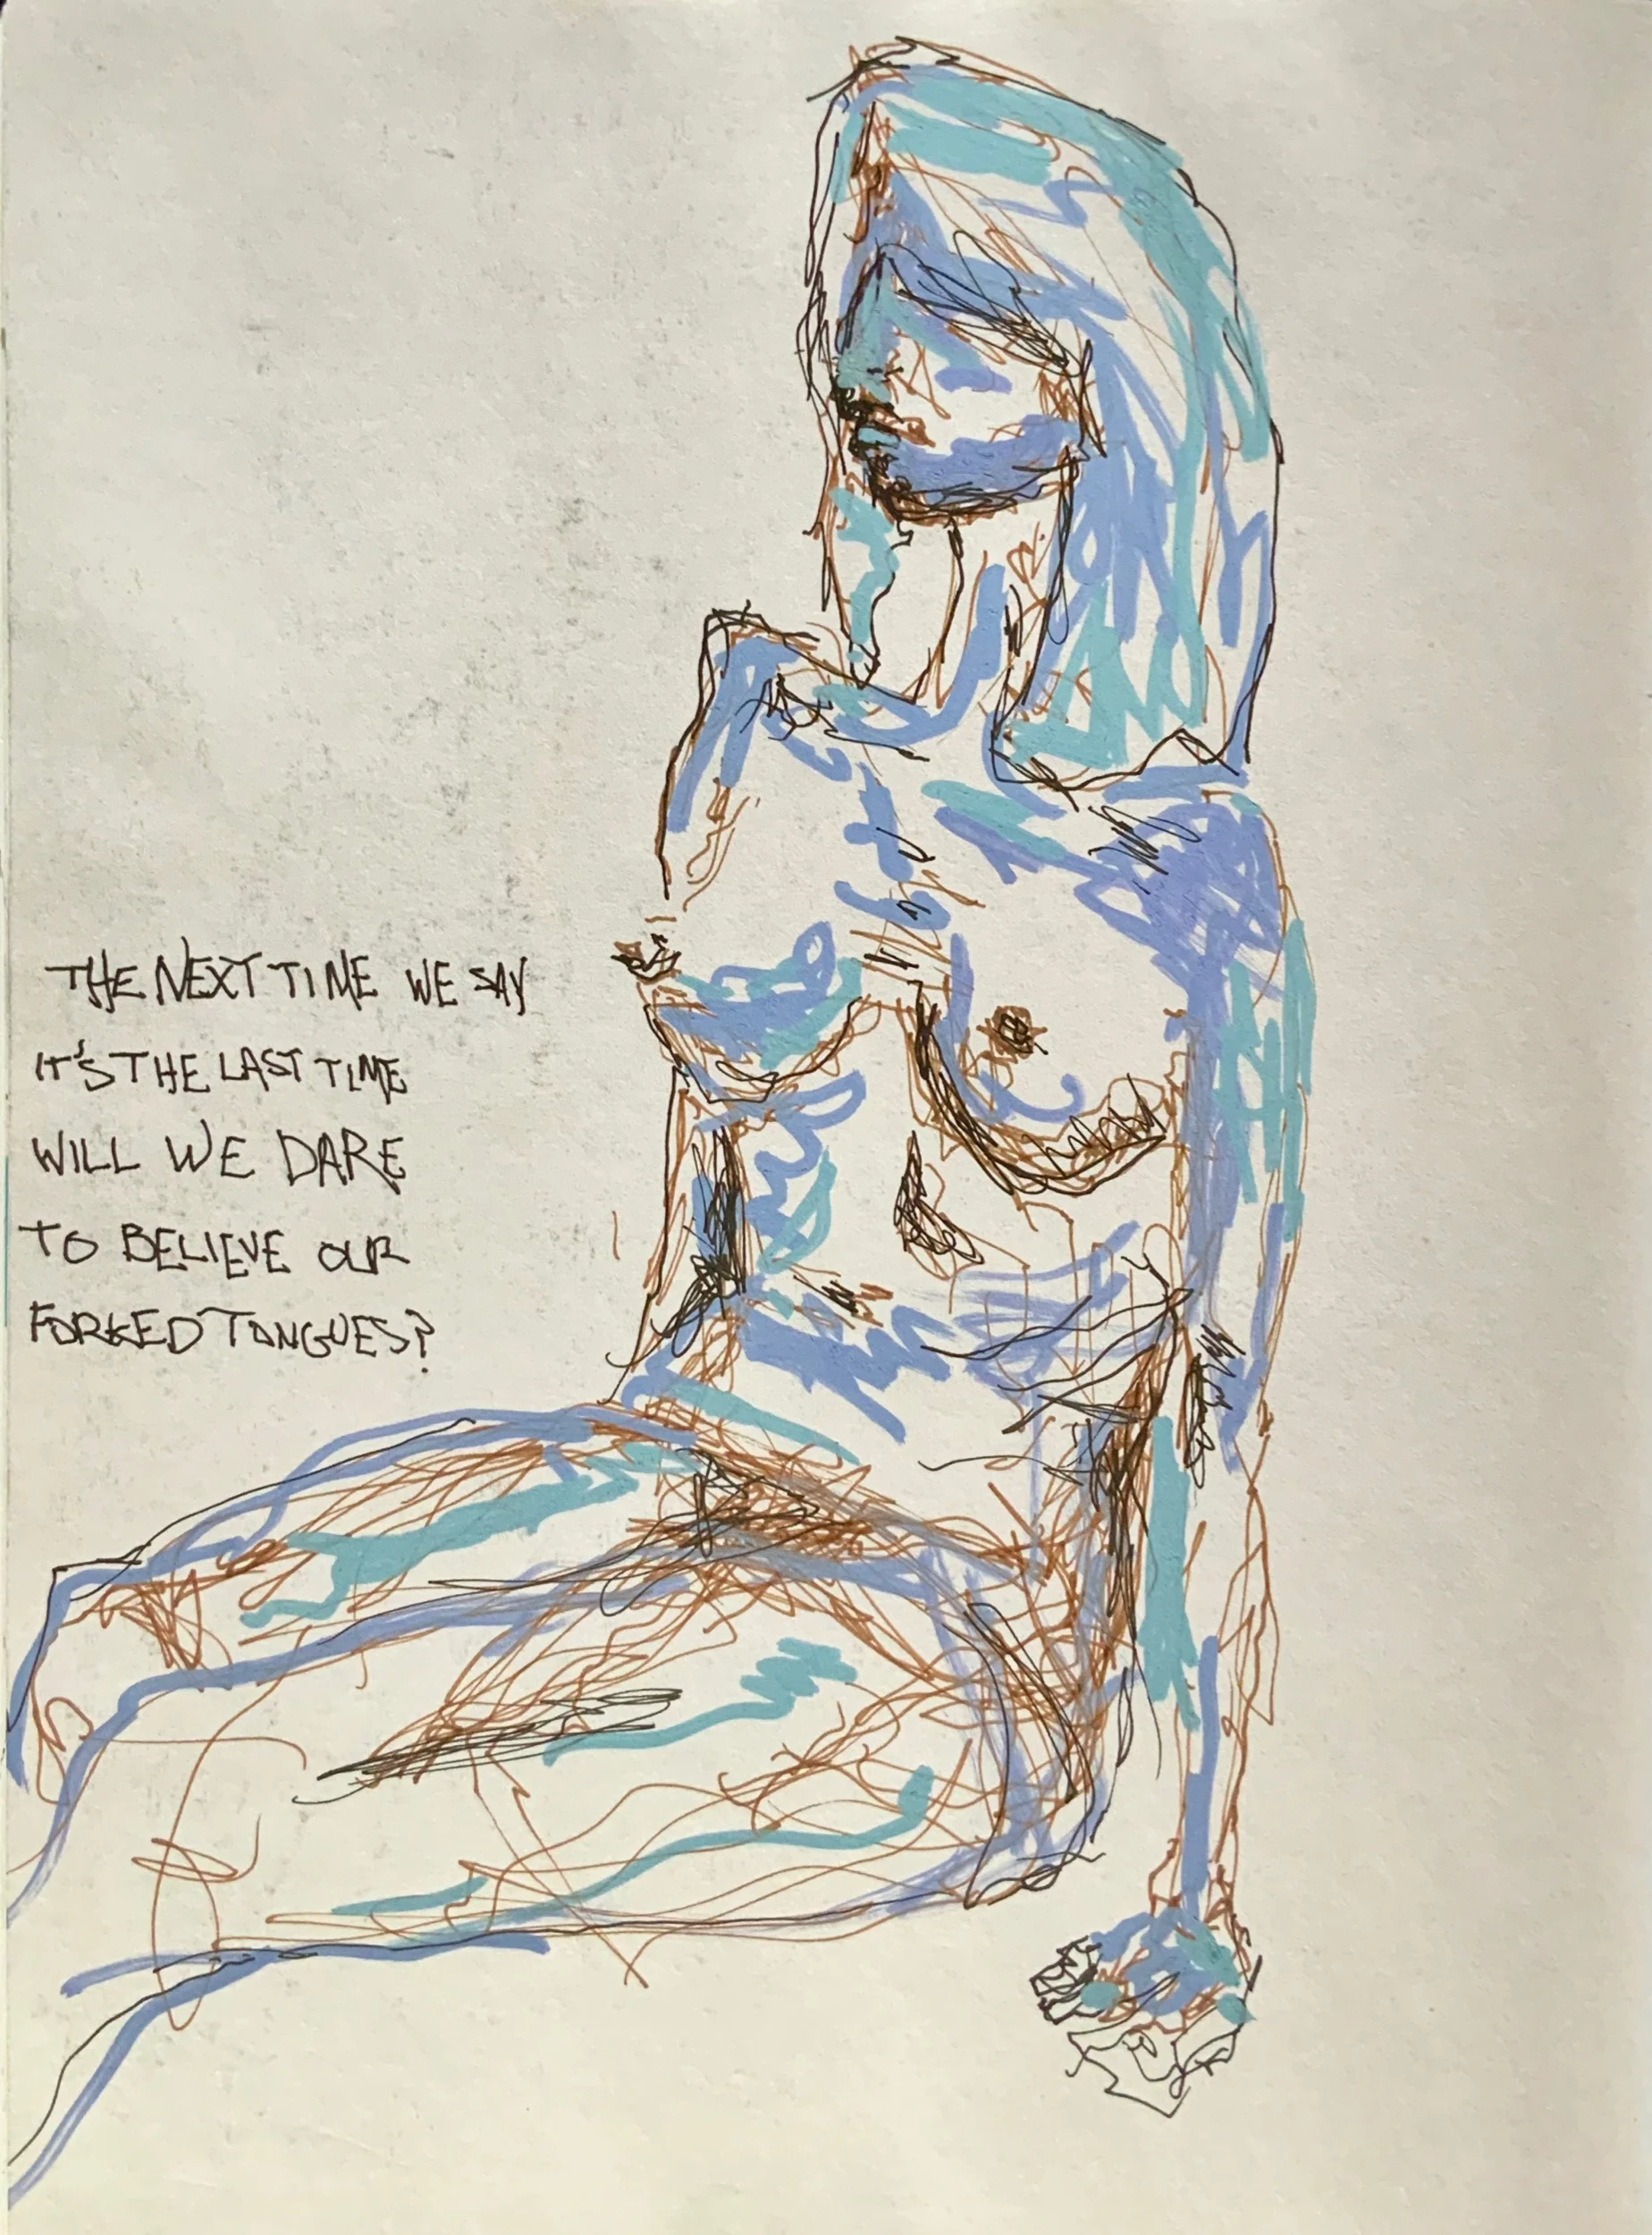 THE NEXT TIME WE SAY
IT'S THE LAST TIME
WILL WE DARE
TO BELIEVE OUR
FORKED TONGUES?